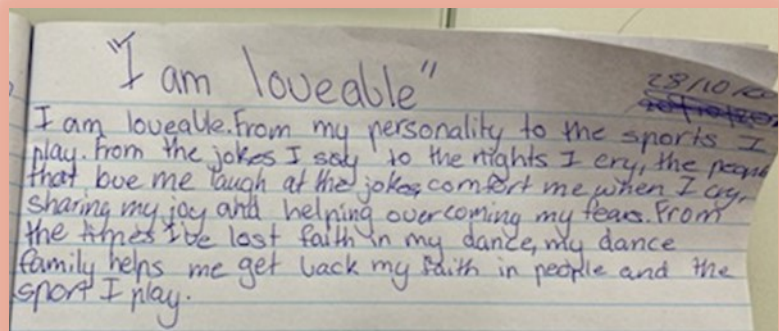 "I am loveable"
28/10/
I am loveable. From my personality to the sports I
play. From the jokes I say to the nights I cry, the people
that love me laugh at the jokes, comfort me when I cry,
sharing my joy and helping overcoming my fears. From
the times I've lost faith in my dance, my dance
family helps me get back my faith in people and the
sport I play.